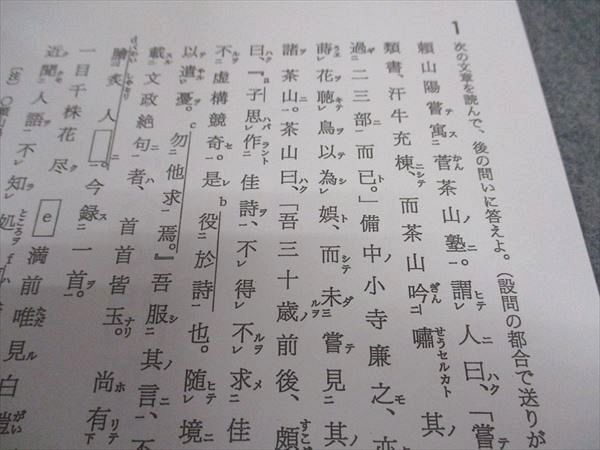 1 次の文章を読んで、後の問いに答えよ。(設問の都合で送りが
頼山陽嘗寓菅茶山塾。謂人曰、「嘗
類書、汗牛充棟、而茶山吟嘯其
過二三部而已。」備中小寺廉之、亦
蒔花聴鳥以為娯、而未嘗見其
諸茶山。茶山曰、「吾三十歳前後、頗
曰、『子思作佳詩、不得不求佳
不虚構競奇。是役於詩也。随境
以遣憂。勿他求焉。』吾服其言、不
載文政絶句者、首首皆玉。尚有
膾炙人□。今録一首。
一目千株花尽 e 満前唯見白皚
近聞人語不知処